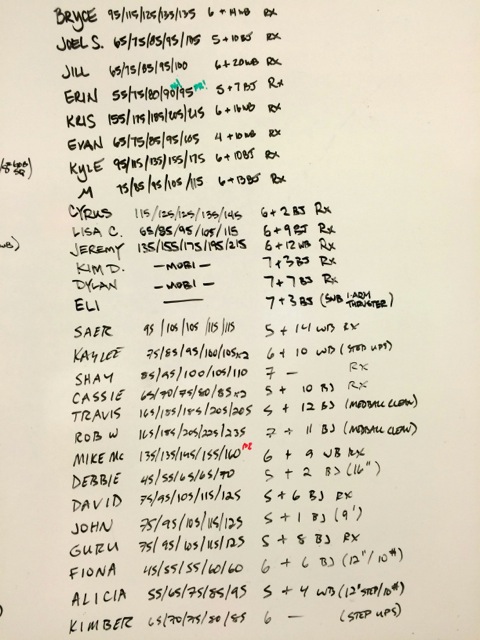 BRYCE 95/115/125/135/135 6 + 14WB RX
JOEL S. 65/75/85/95/105 5 + 10BJ RX
JILL 65/75/85/95/100 6 + 20WB RX
ERIN 55/75/80/90/95 PR! 5 + 7 BJ RX
KRIS 155/175/185/205/215 6 + 16WB RX
EVAN 65/75/85/95/105 4 + 10WB RX
KYLE 95/115/135/155/175 6 + 10BJ RX
M 75/85/95/105/115 6 + 13BJ RX
CYRUS 115/125/125/135/145 6 + 2 BJ RX
LISA C. 65/85/95/105/115 6 + 9 BJ RX
JEREMY 135/155/175/195/215 6 + 12 WB RX
KIM D. — MOBI — 7 + 3 BJ RX
DYLAN — MOBI — 7 + 7 BJ RX
ELI —— 7 + 3 BJ (SUB 1-ARM THRUSTER)
SAER 95/105/105/115/115 5 + 14 WB RX
KAYLEE 75/85/95/100/105x2 6 + 10 WB (STEP UPS)
SHAY 85/95/100/105/110 7 — RX
CASSIE 65/70/75/80/85x2 5 + 10 BJ RX
TRAVIS 165/185/185/205/205 5 + 12 BJ (MEDBALL CLEAN)
ROB W 165/185/205/225/235 7 + 11 BJ (MEDBALL CLEAN)
MIKE MC 135/135/145/155/160 PR 6 + 9 WB RX
DEBBIE 45/55/65/65/70 5 + 2 BJ (16")
DAVID 75/95/105/115/125 5 + 6 BJ RX
JOHN 75/95/105/115/125 5 + 1 BJ (9')
GURU 75/95/105/115/125 5 + 8 BJ RX
FIONA 45/55/55/60/60 6 + 6 BJ (12"/10#)
ALICIA 55/65/75/85/95 5 + 4 WB (12" STEP/10#)
KIMBER 65/70/75/80/85 6 — (STEP UPS)